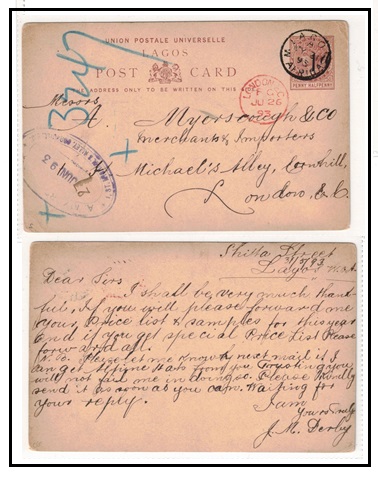 UNION POSTALE UNIVERSELLE
LAGOS
POST CARD
THE ADDRESS ONLY TO BE WRITTEN ON THIS
PENNY HALFPENNY
LAGOS
W. AFRICA
LONDON
JU 26
93
Messrs
A. Myerscough & Co
Merchants & Importers
Michael's Alley, Cornhill,
London, E. C.
27 JUN 93
Shitta Street
Lagos W.C.A.
Dear Sirs
I shall be very much thank-
ful, If you will please forward me
your Price list & samples for this year
And if you get special Price List Please
forward all.
N.B. Please let me know next mail if I
can get Alpine Hats from you Trusting you
will not fail me in doing so. Please kindly
send it as soon as you can. Waiting for
your reply.
I am
Yours truly
J. M. Derby